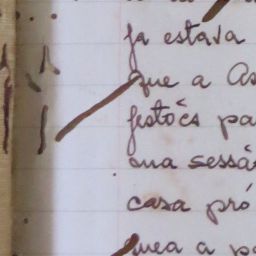 ja estava
que a As
festões pa
sua sessã
casa pró